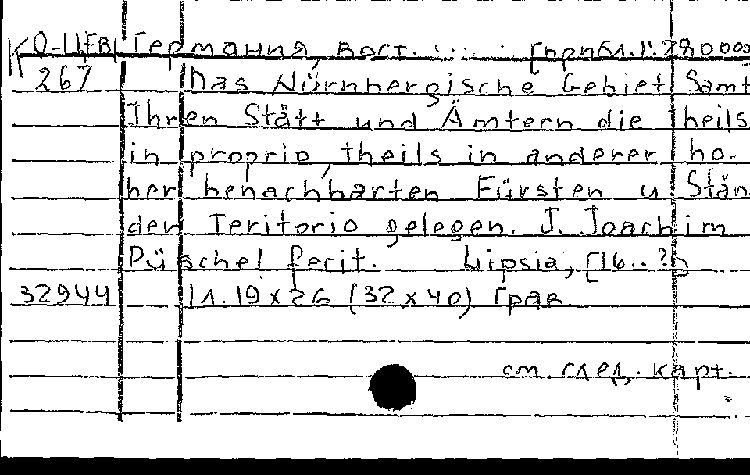 К О-ЦЕВ Германия, вост. ..... [прибл. 1:280000]
267 Das Nürnbergische Gebiet Samt
Ihren Stätt und Ämtern die theils
in proprio, theils in anderer ho-
her benachbarten Fürsten u Stän
den Teritorio gelegen. J. Joachim
Püschel fecit. Lipsia, [16..?]
32944 1 л. 19 x 26 (32 x 40) Грав
см. след. карт.